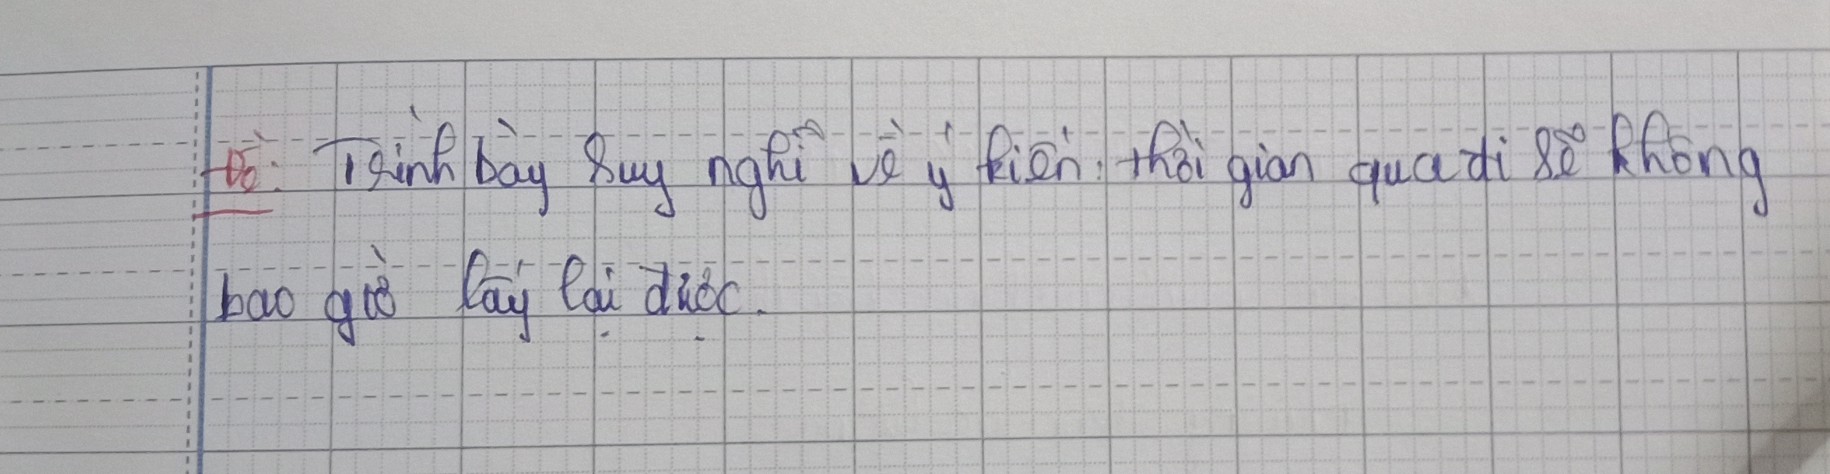 Đề: Trình bày suy nghĩ về ý kiến: thời gian qua đi sẽ không
bao giờ lấy lại được.